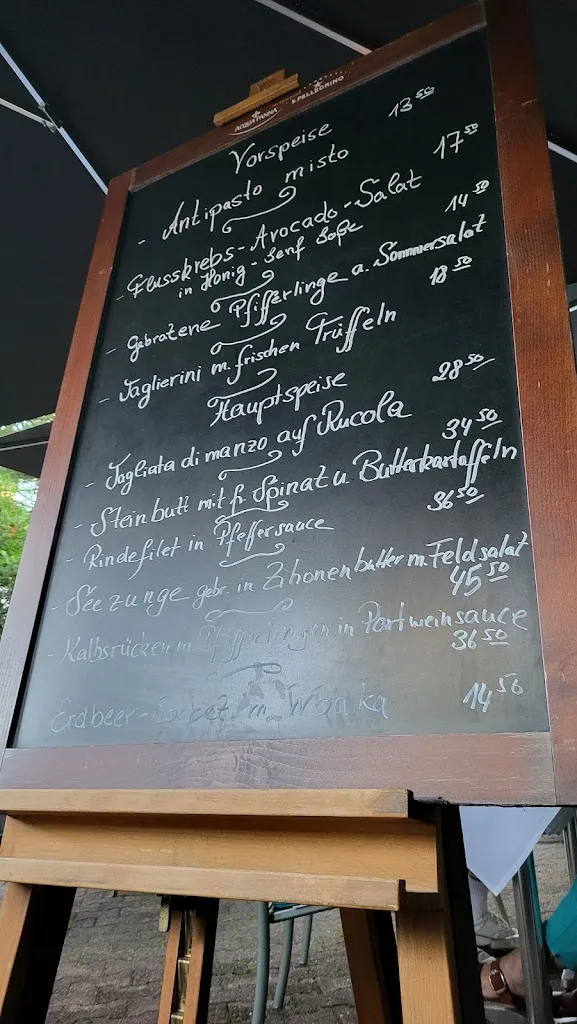 ACQUA PANNA S.PELLEGRINO
Vorspeise
- Antipasto misto 13 50
- Flusskrebs-Avocado-Salat 17 50
in Honig-Senf Soße
- Gebratene Pfifferlinge a. Sommersalat 14 50
- Taglierini m. frischen Trüffeln 18 50
Hauptspeise
- Tagliata di manzo auf Rucola 28 50
- Steinbutt mit fr. Spinat u. Butterkartoffeln 34 50
- Rindefilet in Pfeffersauce 36 50
- Seezunge gebr. in Zitronenbutter m. Feldsalat 45 50
- Kalbsrücken m. Pfifferlingen in Portweinsauce 36 50
Erdbeer-Sorbet m. Wodka 14 50